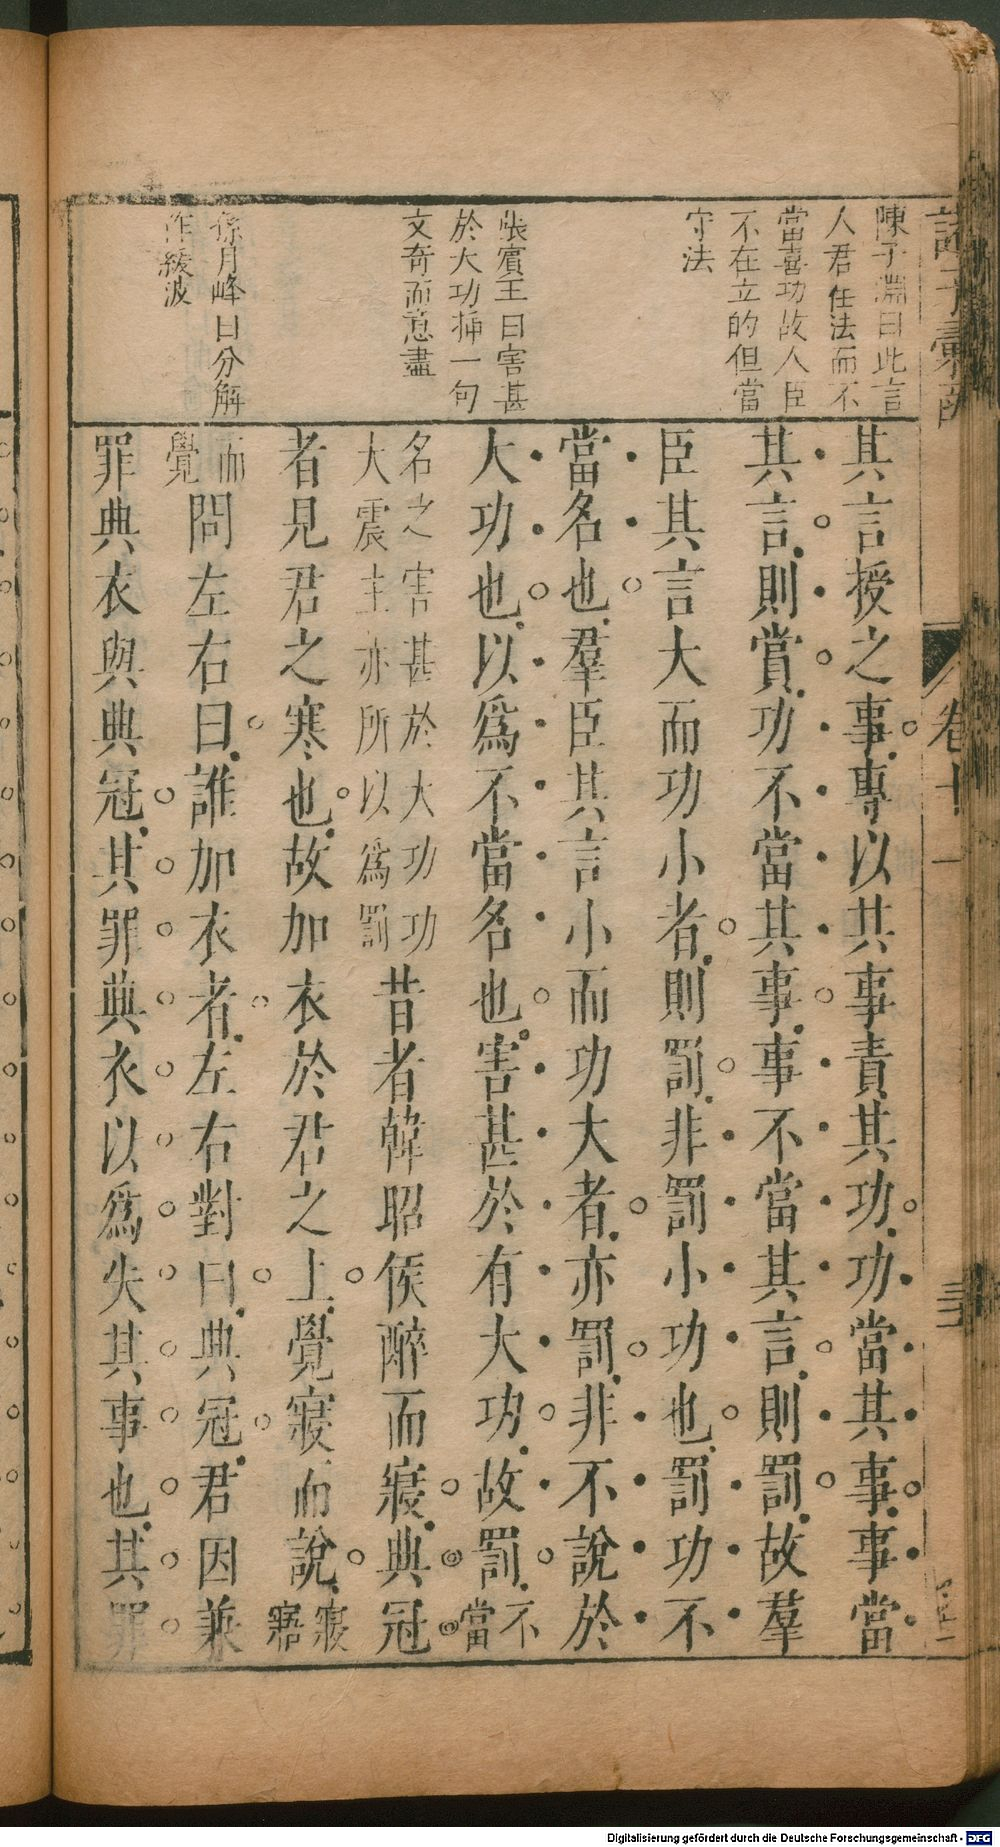 陳子淵曰此言
人君任法而不
當喜功故人臣
不在立的但當
守法
張賓王曰害甚
於大功揷一句
文奇而意盡
孫月峰曰分解
作綾波
其言授之事專以其事責其功功當其事事當
其言則賞功不當其事事不當其言則罰故羣
臣其言大而功小者則罰非罰小功也罰功不
當名也羣臣其言小而功大者亦罰非不說於
大功也以爲不當名也害甚於有大功故罰不當
名之害甚於大功功大震主亦所以爲罰昔者韓昭侯醉而寢典冠
者見君之寒也故加衣於君之上覺寢而說寢寤
而覺問左右曰誰加衣者左右對曰典冠君因兼
罪典衣與典冠其罪典衣以爲失其事也其罪
卷十一
Digitalisierung gefördert durch die Deutsche Forschungsgemeinschaft - DFG